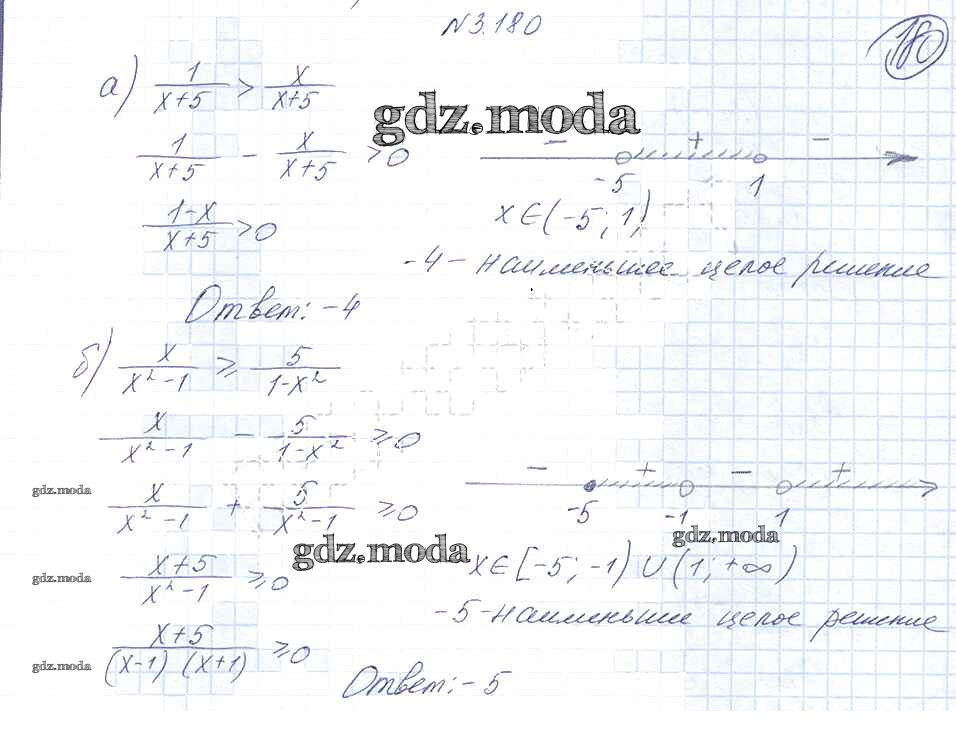 N3.180
180
а) 1/(x+5) > x/(x+5)
gdz.moda
1/(x+5) - x/(x+5) > 0
- + -
-5 1
(1-x)/(x+5) > 0
x∈(-5; 1)
-4 - наименьшее целое решение
Ответ: -4
б) x/(x²-1) ≥ 5/(1-x²)
x/(x²-1) - 5/(1-x²) ≥ 0
gdz.moda
x/(x²-1) + 5/(x²-1) ≥ 0
- + - +
-5 -1 1
gdz.moda
gdz.moda
gdz.moda
(x+5)/(x²-1) ≥ 0
x∈[-5; -1) ∪ (1; +∞)
-5 - наименьшие целое решение
gdz.moda
(x+5)/((x-1) (x+1)) ≥ 0
Ответ: -5
gdz.moda